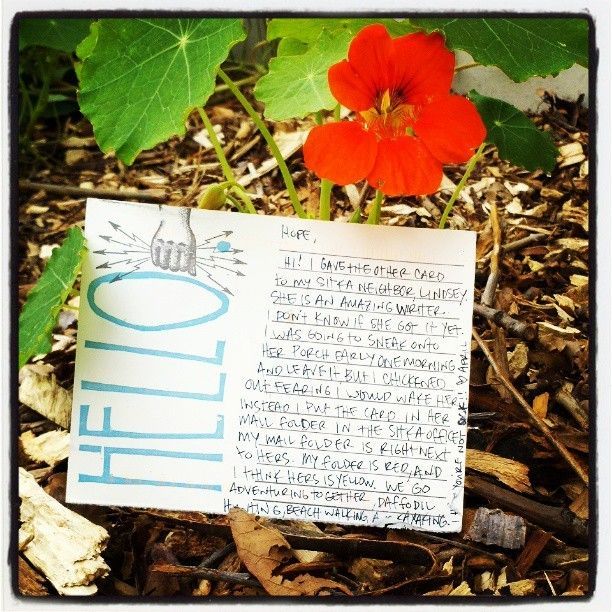 HELLO
HOPE,
HI! I GAVE THE OTHER CARD
TO MY SITKA NEIGHBOR, LINDSEY.
SHE IS AN AMAZING WRITER.
I DON'T KNOW IF SHE GOT IT YET.
I WAS GOING TO SNEAK ONTO
HER PORCH EARLY ONE MORNING
AND LEAVE IT BUT I CHICKENED
OUT FEARING I WOULD WAKE HER.
INSTEAD I PUT THE CARD IN HER
MAIL FOLDER IN THE SITKA OFFICE.
MY MAIL FOLDER IS RIGHT NEXT
TO HERS. MY FOLDER IS RED, AND
I THINK HERS IS YELLOW. WE GO
ADVENTURING TOGETHER DAFFODIL
HUNTING, BEACH WALKING,